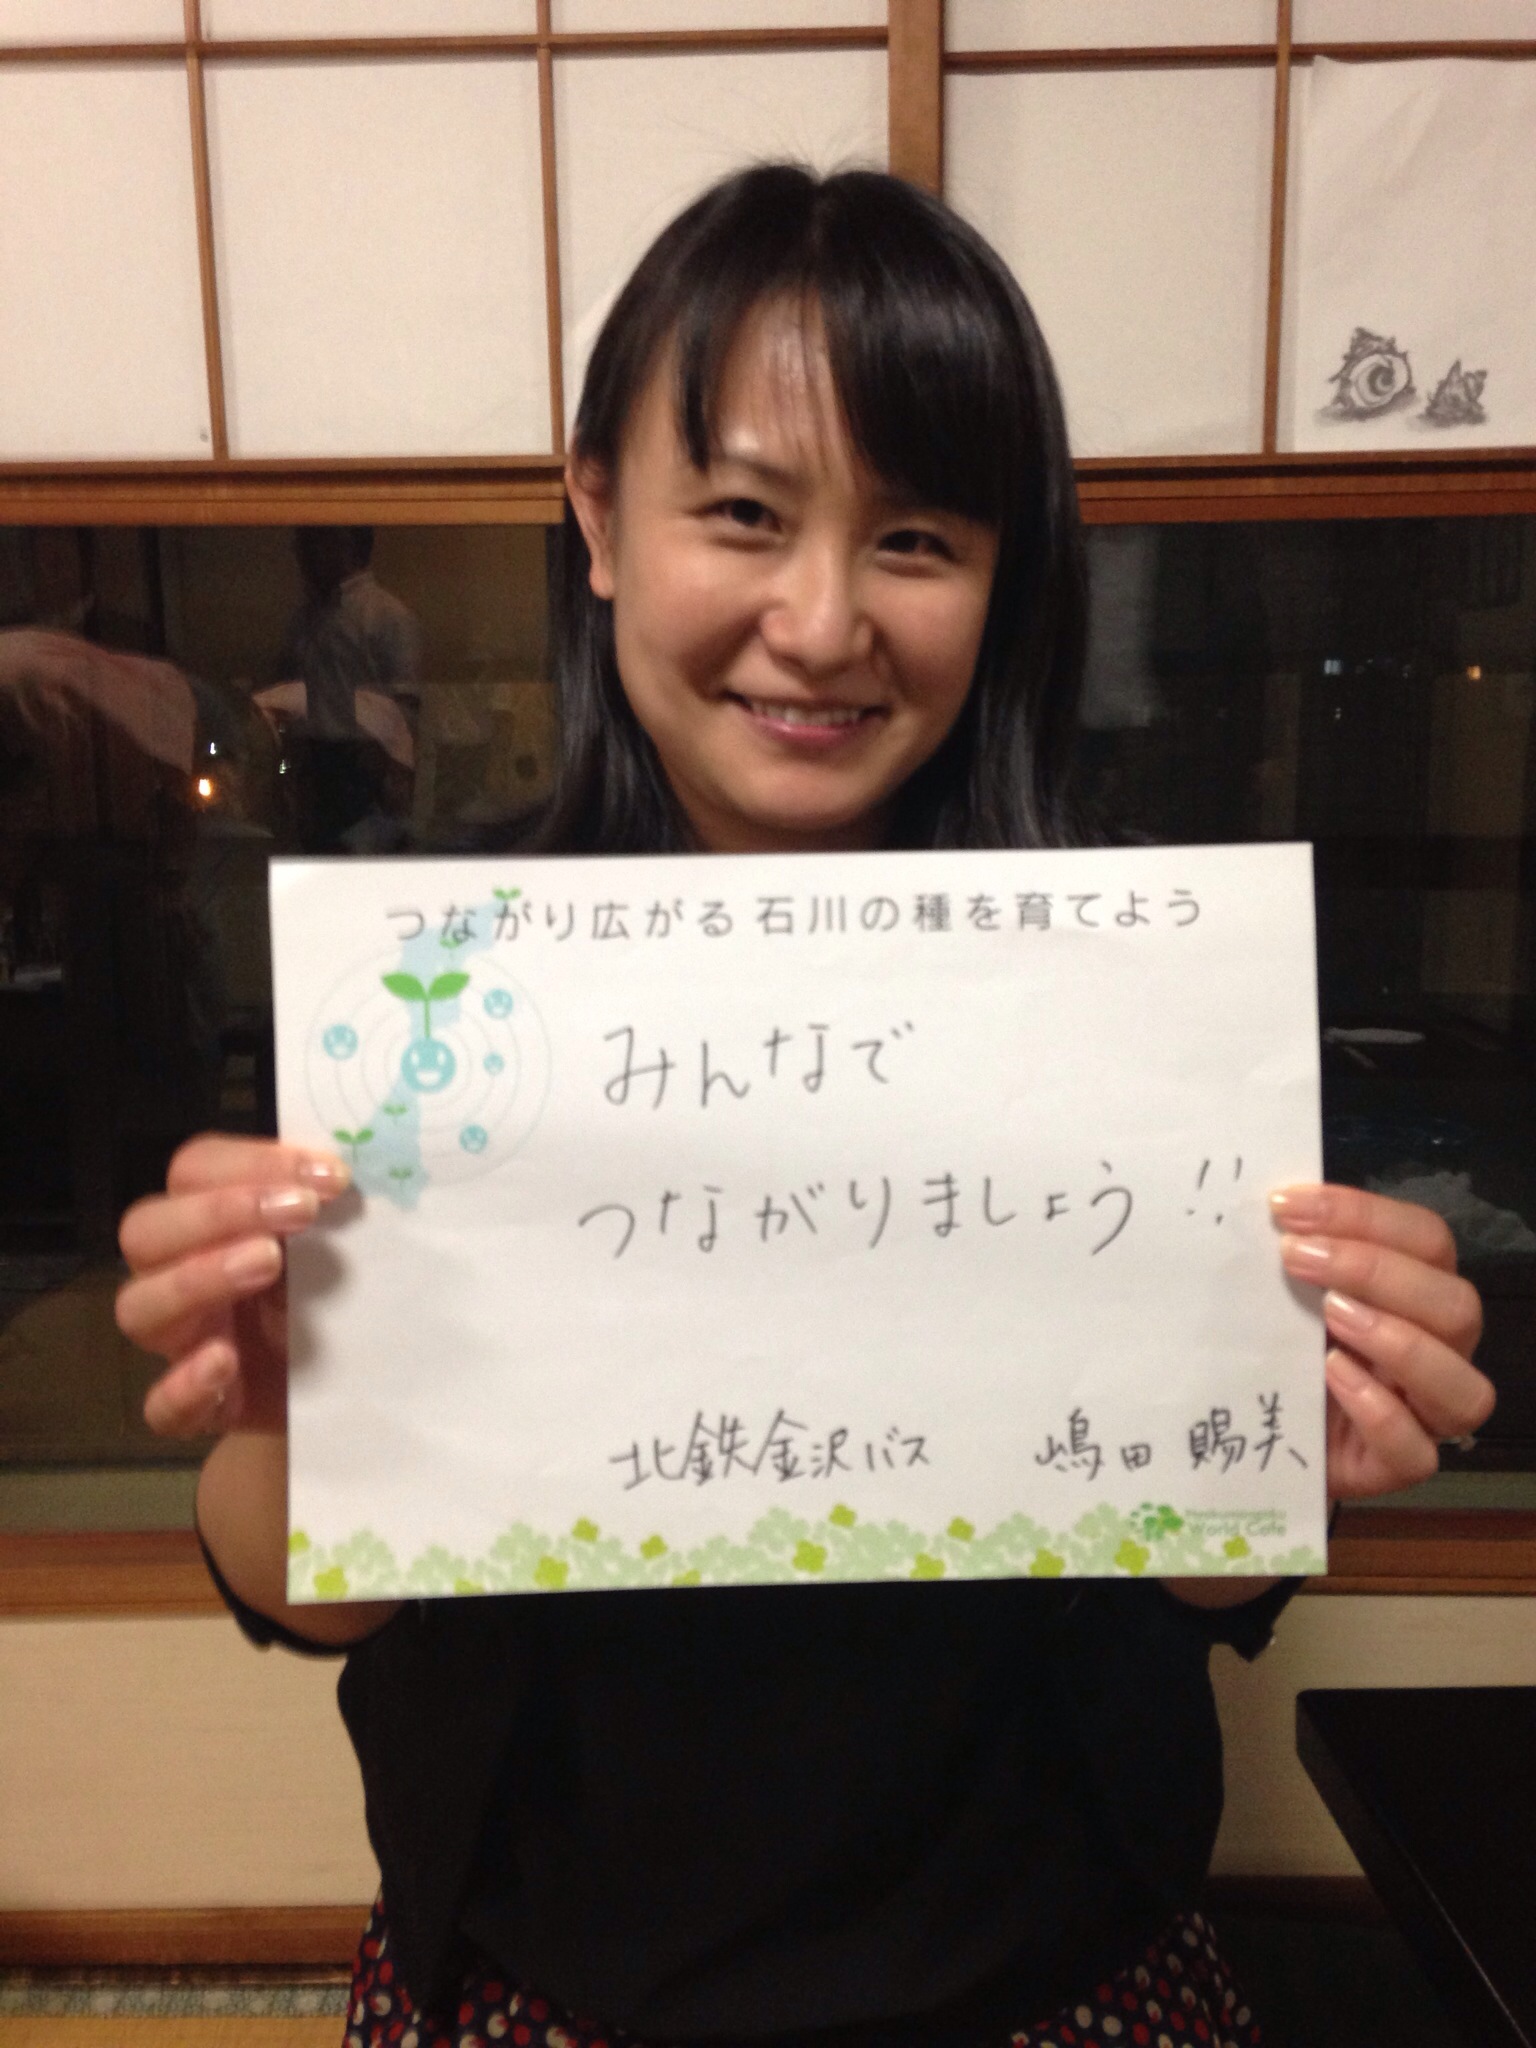 つながり広がる 石川の種を育てよう
みんなで
つながりましょう!!
北鉄金沢バス 嶋田 賜美
World Cafe